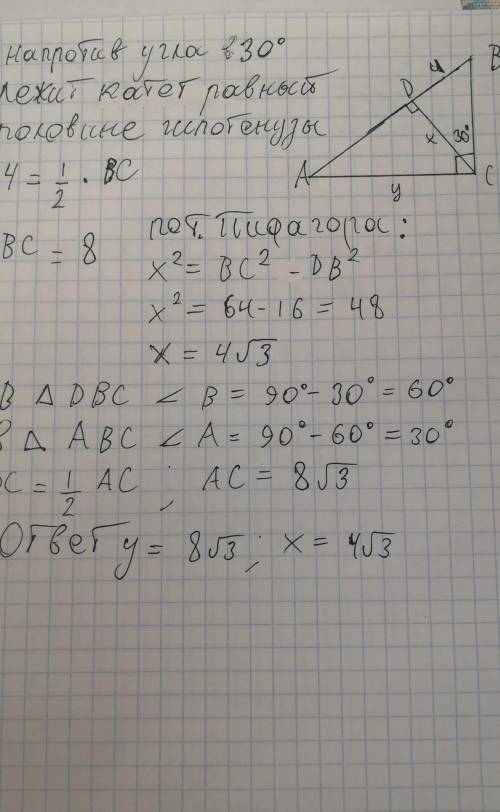 напротив угла в 30°
лежит катет равный
половине гипотенузы
4 = 1/2 · BC
BC = 8
по т. Пифагора:
x² = BC² - DB²
x² = 64 - 16 = 48
x = 4√3
В △ DBC ∠ B = 90° - 30° = 60°
В △ ABC ∠ A = 90° - 60° = 30°
DC = 1/2 AC ; AC = 8√3
Ответ y = 8√3 ; x = 4√3
B
4
D
x
30°
A
C
y